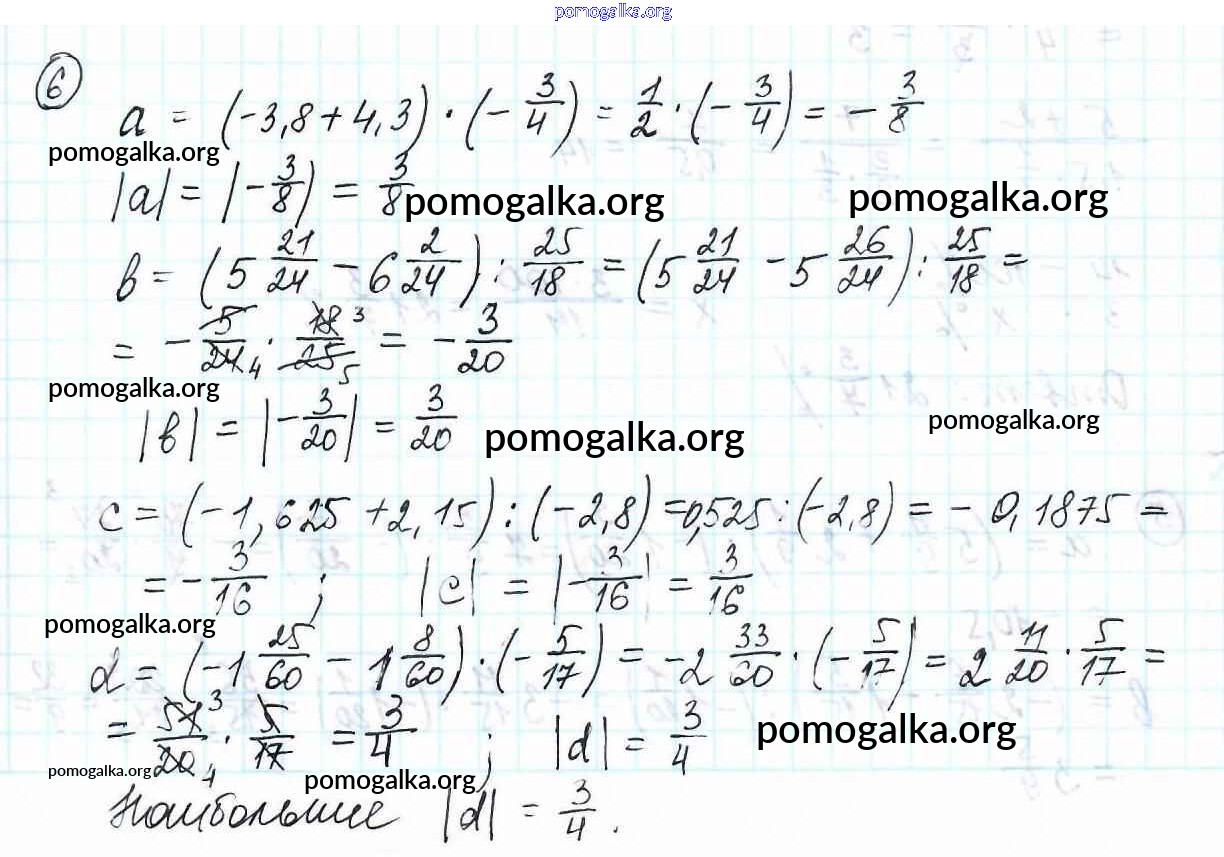 pomogalka.org
6
a = (-3,8 + 4,3) · (- 3/4) = 1/2 · (- 3/4) = - 3/8
pomogalka.org
|a| = |- 3/8| = 3/8
pomogalka.org pomogalka.org
b = (5 21/24 - 6 2/24) : 25/18 = (5 21/24 - 5 26/24) : 25/18 =
= - 5/24 4 · 18 3/25 5 = - 3/20
pomogalka.org
|b| = |- 3/20| = 3/20
pomogalka.org pomogalka.org
c = (-1,625 + 2,15) : (-2,8) = 0,525 : (-2,8) = - 0,1875 =
= - 3/16 ; |c| = |- 3/16| = 3/16
pomogalka.org
d = (-1 25/60 - 1 8/60) · (- 5/17) = -2 33/60 · (- 5/17) = 2 11/20 · 5/17 =
= 51 3/20 4 · 5/17 = 3/4 ; |d| = 3/4
pomogalka.org
pomogalka.org pomogalka.org
Наибольшие |d| = 3/4 .